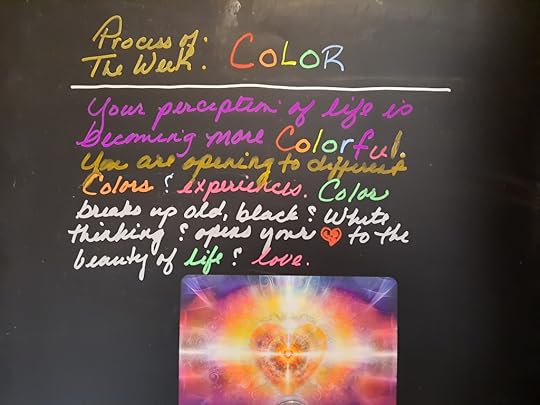 Process of:
The Week: COLOR
Your perception of life is
becoming more Colorful.
You are opening to different
Colors & experiences. Color
breaks up old, black & White
thinking & opens your ❤ to the
beauty of life & love.